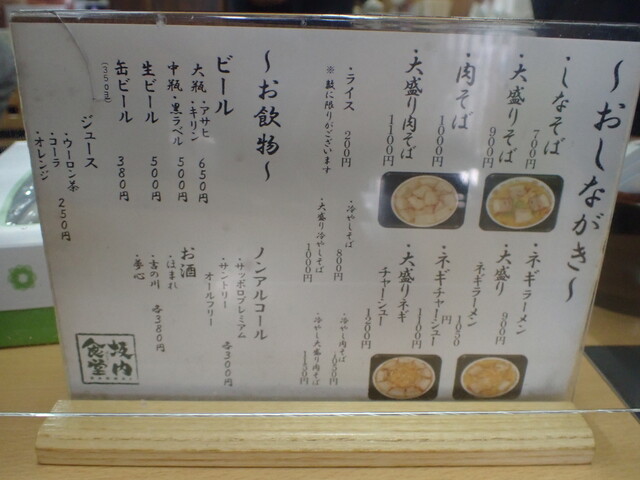 〜おしながき〜
・しなそば
700円
・大盛りそば
900円
・肉そば
1000円
・大盛り肉そば
1100円
・ネギラーメン
900円
・大盛り
ネギラーメン
1050
円
・ネギチャーシュー
1100円
・大盛りネギ
チャーシュー
1200円
・ライス 200円
※数に限りがございます
・冷やしそば
800円
・大盛り冷やしそば
1000円
・冷やし肉そば
・冷やし大盛り肉そば
1150円
〜お飲物〜
ビール
大瓶・アサヒ
・キリン 650円
中瓶・黒ラベル 500円
生ビール 500円
缶ビール 380円
(350ml)
ジュース
・ウーロン茶
・コーラ 250円
・オレンジ
ノンアルコール
・サッポロプレミアム
・サントリー
オールフリー
各300円
お酒
・ほまれ
・吉の川 各380円
・夢心
坂内
食堂
BANNAI